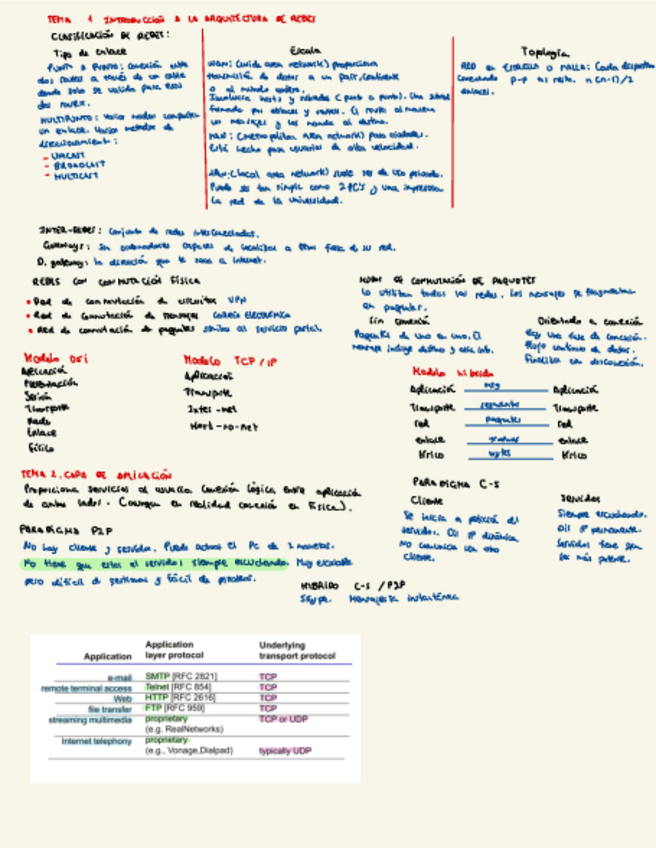 TEMA 1 INTRODUCCIÓN A LA ARQUITECTURA DE REDES
CLASIFICACIÓN DE REDES:
Tipo de enlace
PUNTO A PUNTO: conexión entre
dos routers a través de un cable
donde solo se valida para esos
dos routers.
MULTIPUNTO: Varios nodos comparten
un enlace. Varios métodos de
direccionamiento:
- UNICAST
- BROADCAST
- MULTICAST
Escala
WAN: (wide area network) proporciona
transmisión de datos a un país, continente
o al mundo entero.
Involucra hosts y subredes (punto a punto). Una subred
formada por enlaces y routers. El router almacena
un mensaje y los manda al destino.
MAN: (metropolitan area network) para ciudades.
Está hecho para usuarios de alta velocidad.
LAN: (local area network) suele ser de uso privado.
Puede ser tan simple como 2 PC's y una impresora
La red de la universidad.
Topología
RED en ESTRELLA o MALLA: Cada dispositivo
conectado p-p al resto. n(n-1)/2
enlaces.
INTER-REDES: Conjunto de redes interconectadas.
Gateways: Son ordenadores capaces de
fuera de su red.
D. gateway: la dirección que te saca a internet.
REDES CON CONMUTACIÓN FÍSICA
• Red de conmutación de circuitos VPN
• Red de conmutación de mensajes CORREO ELECTRÓNICO
• Red de conmutación de paquetes similar al servicio postal.
REDES DE CONMUTACIÓN DE PAQUETES
Lo utilizan todas las redes. Los mensajes se fragmentan
en paquetes.
Sin conexión
Paquetes de uno en uno. El
mensaje incluye destino y
Orientado a conexión
Hay una fase de conexión.
Flujo continuo de datos.
Finaliza en desconexión.
Modelo OSI
Aplicación
Presentación
Sesión
Transporte
Red
Enlace
Físico
Modelo TCP/IP
Aplicación
Transporte
Inter-net
Host-to-net
Modelo híbrido
Aplicación msg Aplicación
Transporte segmentos Transporte
red paquetes red
enlace tramas enlace
físico bytes físico
TEMA 2. CAPA DE APLICACIÓN
Proporciona servicios al usuario. Conexión lógica entre aplicación
de ambos lados. (Aunque en realidad conexión es física).
PARADIGMA P2P
No hay cliente y servidor. Puede actuar el PC de 2 maneras.
No tiene que estar el servidor siempre escuchando. Muy escalable
pero difícil de gestionar y fácil de piratear.
PARADIGMA C-S
Cliente
Se inicia a petición del
servidor. Dir IP dinámica
No comunica con otro
cliente.
Servidor
Siempre escuchando.
Dir IP permanente.
Servidor tiene que
ser más potente.
HIBRIDO C-S / P2P
Skype. Mensajería instantánea
Application Application layer protocol Underlying transport protocol
e-mail SMTP [RFC 2821] TCP
remote terminal access Telnet [RFC 854] TCP
Web HTTP [RFC 2616] TCP
file transfer FTP [RFC 959] TCP
streaming multimedia proprietary TCP or UDP
(e.g. RealNetworks)
Internet telephony proprietary
(e.g., Vonage,Dialpad) typically UDP